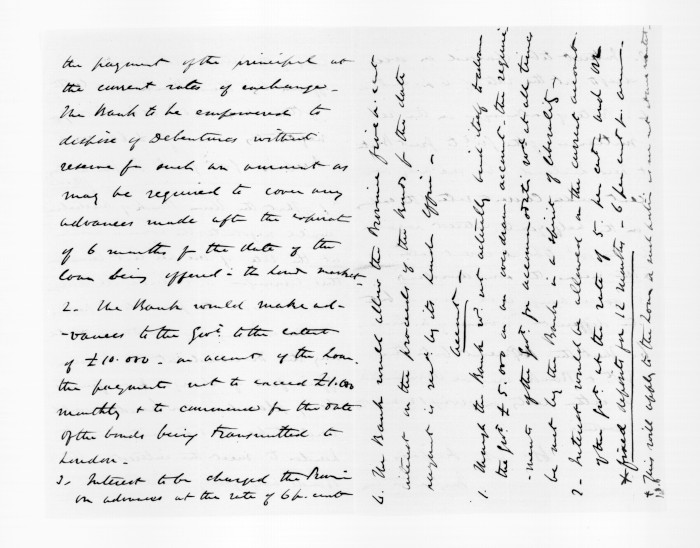 the payment of the principal at
the current rates of exchange -
The Bank to be empowered to
dispose of Debentures, without
reserve for such an amount as
may be required to cover any
advances made after the expirat
of 6 months fr the date of the
loan being offered in the Lond market.
2. The Bank would make ad-
-vances to the Govt to the extent
of £10.000 - on account of the loan
the payment not to exceed £1.000
monthly & to commence fr the date
of the bonds being transmitted to
London -
3. Interest to be charged the Provin
on advances at the rate of 6 p. cent
4. The Bank would allow the Province five p. cent
interest on the proceeds of the bonds fr the date
receipt is recd by its London Office -
Account -
1. Though the Bank wd not actually bind itself to allow
the Govt £5.000 on an overdrawn account the require
-ments of the Govt for accommodation wd at all times
be met by the Bank in a spirit of liberality -
2 - Interest would be allowed on the current account
of the Govt at the rate of 5. per cent, and on
+ fixed deposits for 12 months - 6 per cent per ann -
+ This will apply to the Loan